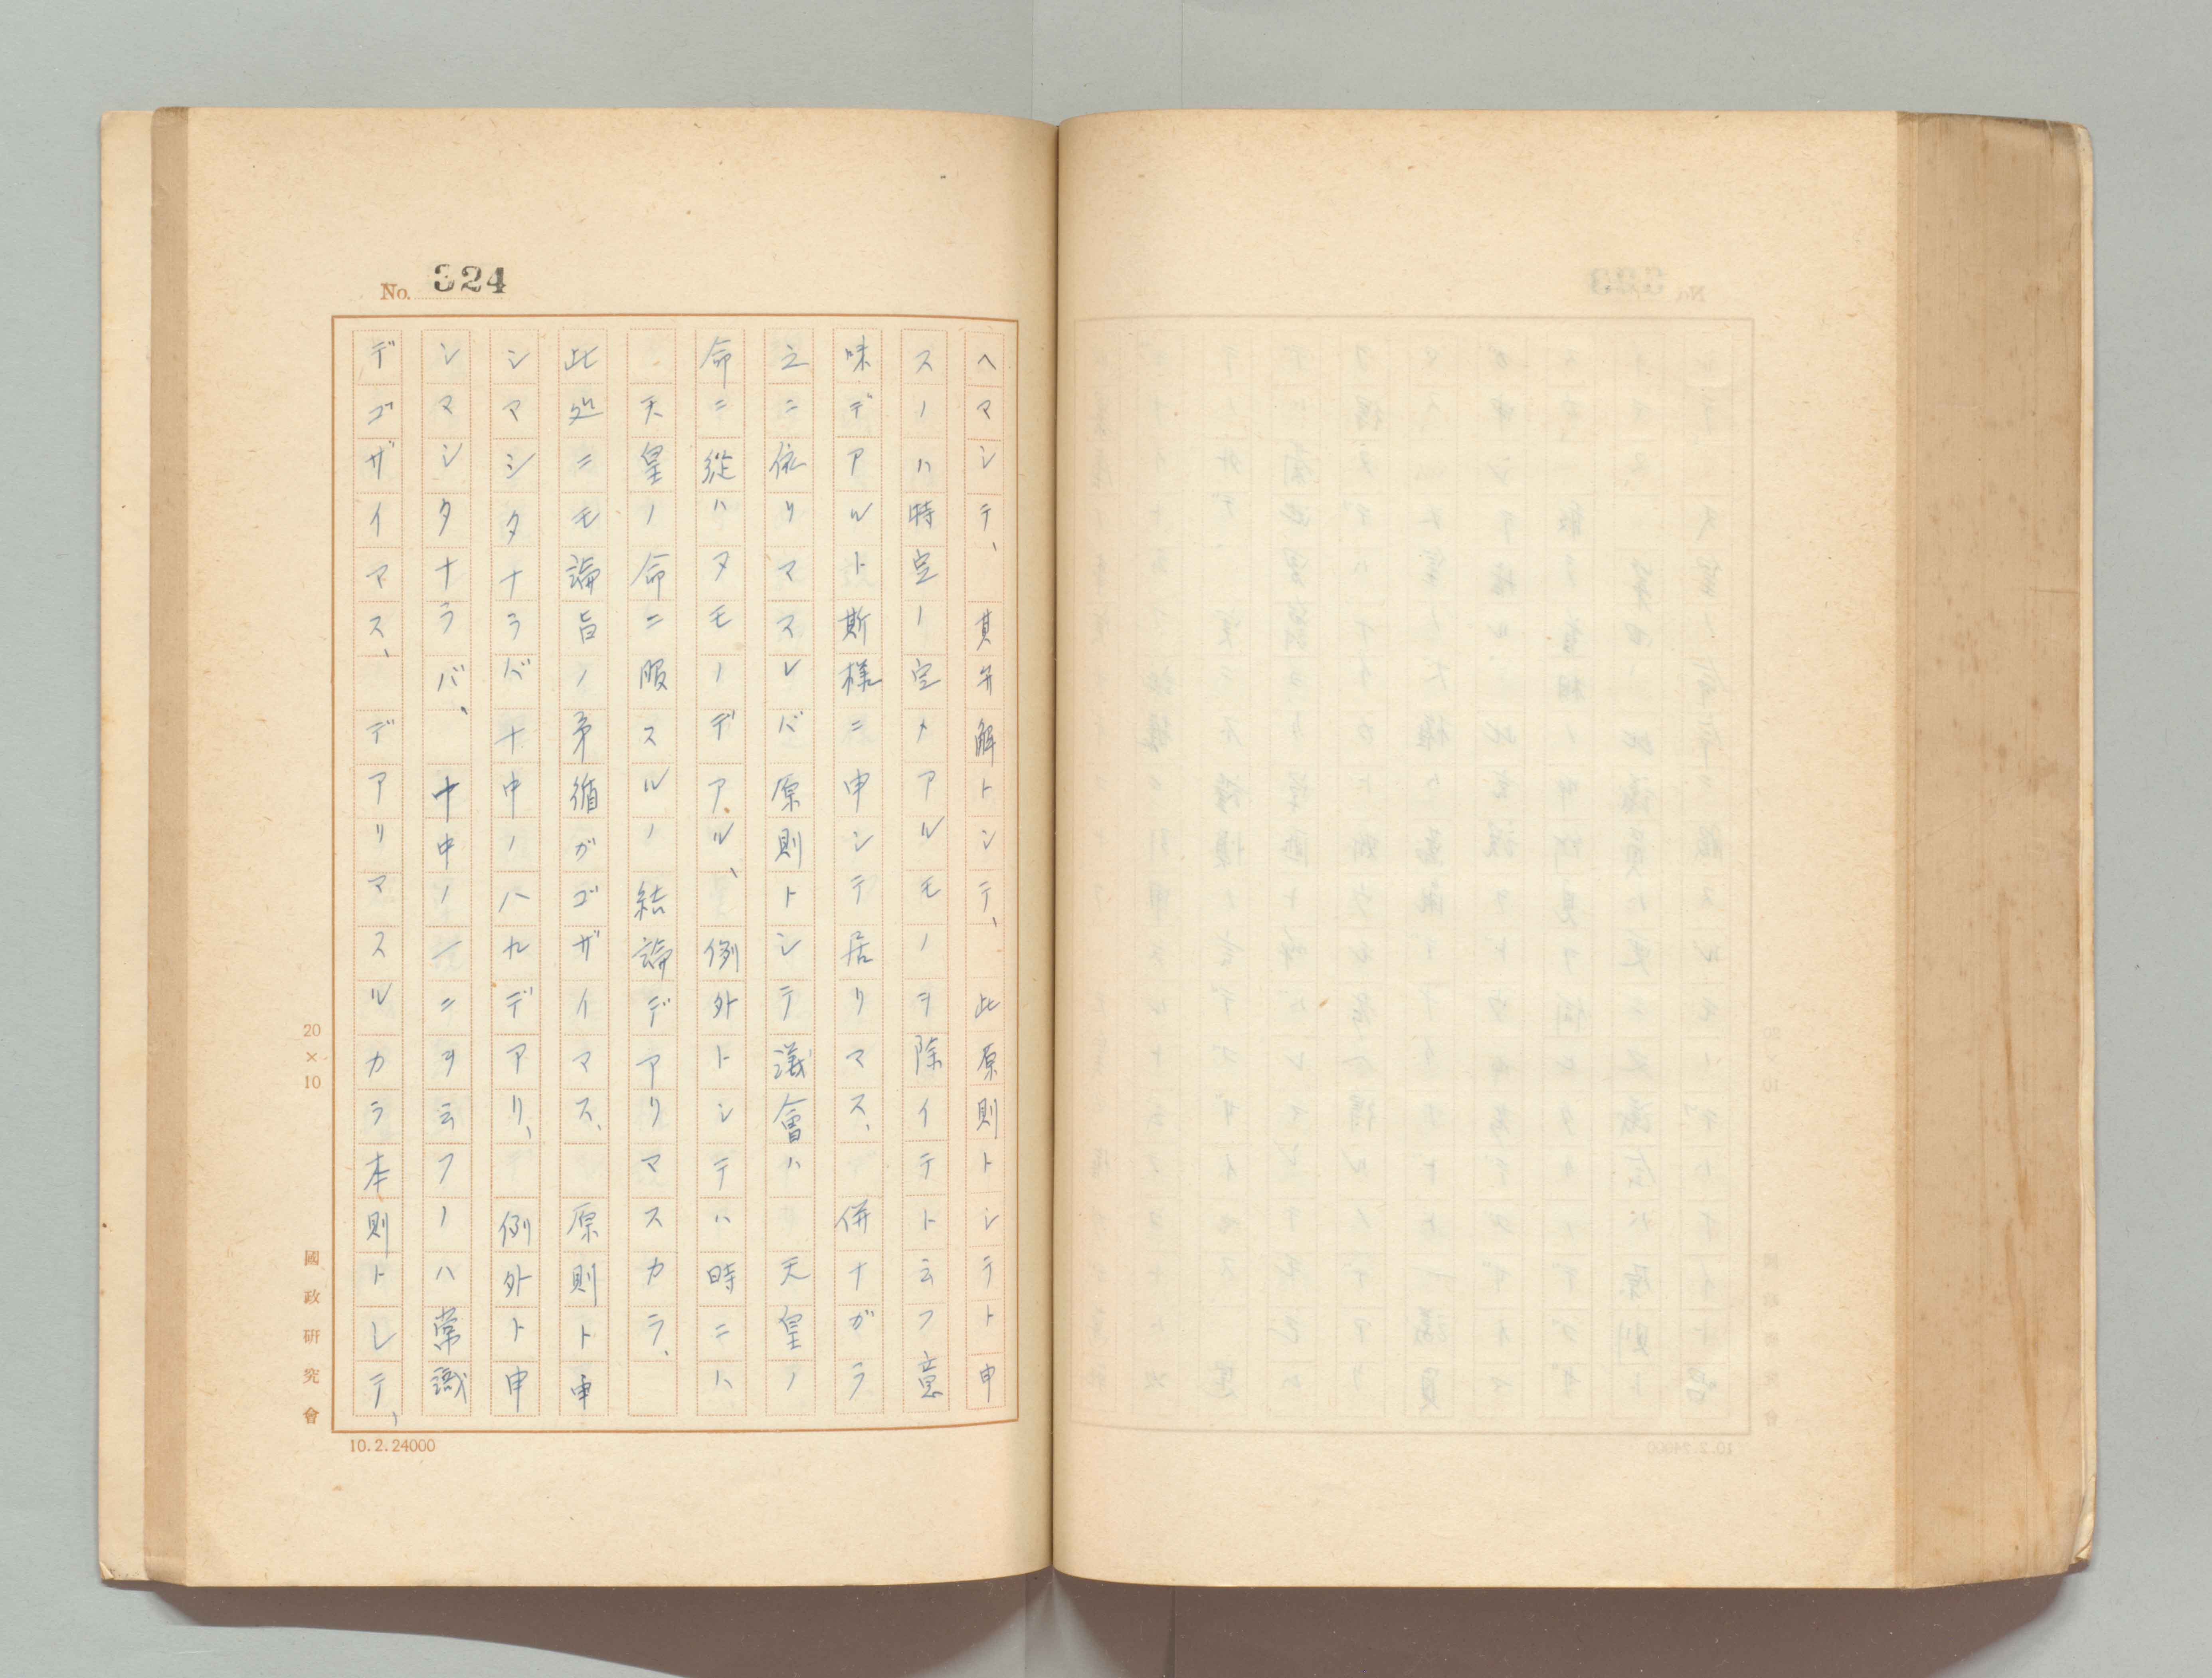 No. 324
ヘマシテ、其弁解トシテ、此原則トシテト申
スノハ特定ノ定メアルモノヲ除イテト云フ意
味デアルト斯様ニ申シテ居リマス、併ナガラ
之ニ依リマスレバ原則トシテ議會ハ天皇ノ
命ニ從ハヌモノデアル、例外トシテハ時ニハ
天皇ノ命ニ服スルノ結論デアリマスカラ、
此処ニモ論旨ノ矛循ガゴザイマス、原則ト申
シマシタナラバ十中ノ八九デアリ、例外ト申
シマシタナラバ、十中ノ一二ヲ云フノハ常識
デゴザイマス、デアリマスルカラ本則トシテ、
20×10
國政研究會
10.2.24000